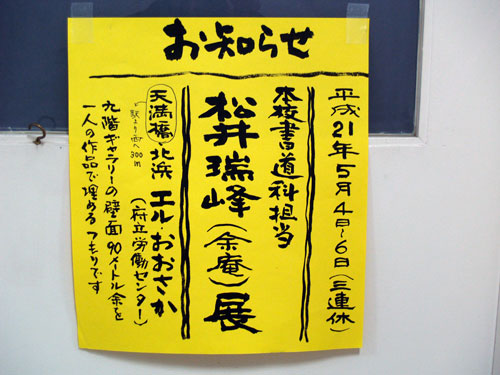 お知らせ
平成21年5月4日~6日(三連休)
本校書道科担当
松井瑞峰(余庵)展
天満橋・北浜 エル・おおさか
「駅より西へ300m
(府立労働センター)
九階ギャラリーの壁面90メートル余を
一人の作品で埋めるつもりです